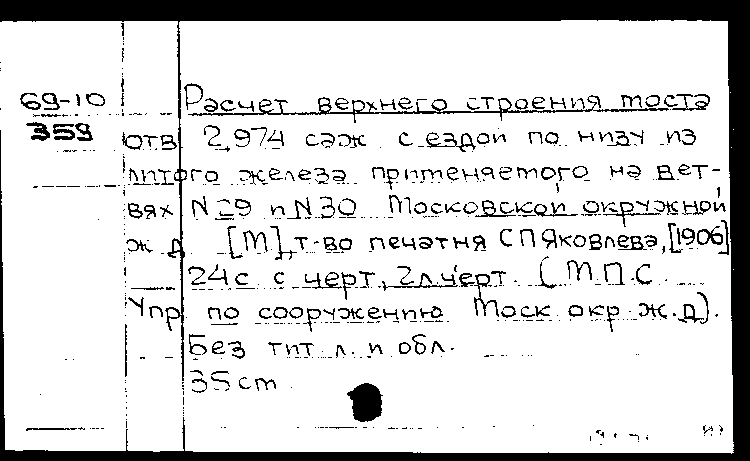 69-10 Расчет верхнего строения моста
359 отв 2,974 саж с ездой по низу из
литого железа применяемого на вет-
вях N 29 и N 30 Московской окружной
ж д [М], т-во печатня С П Яковлева, [1906]
24 с с черт, 2 л черт. (М.П.С.
Упр по сооружению Моск окр. ж.д).
Без тит л. и обл.
35 cm